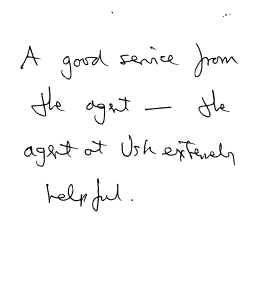 A good service from
the agent — the
agent at Ush extremely
helpful.